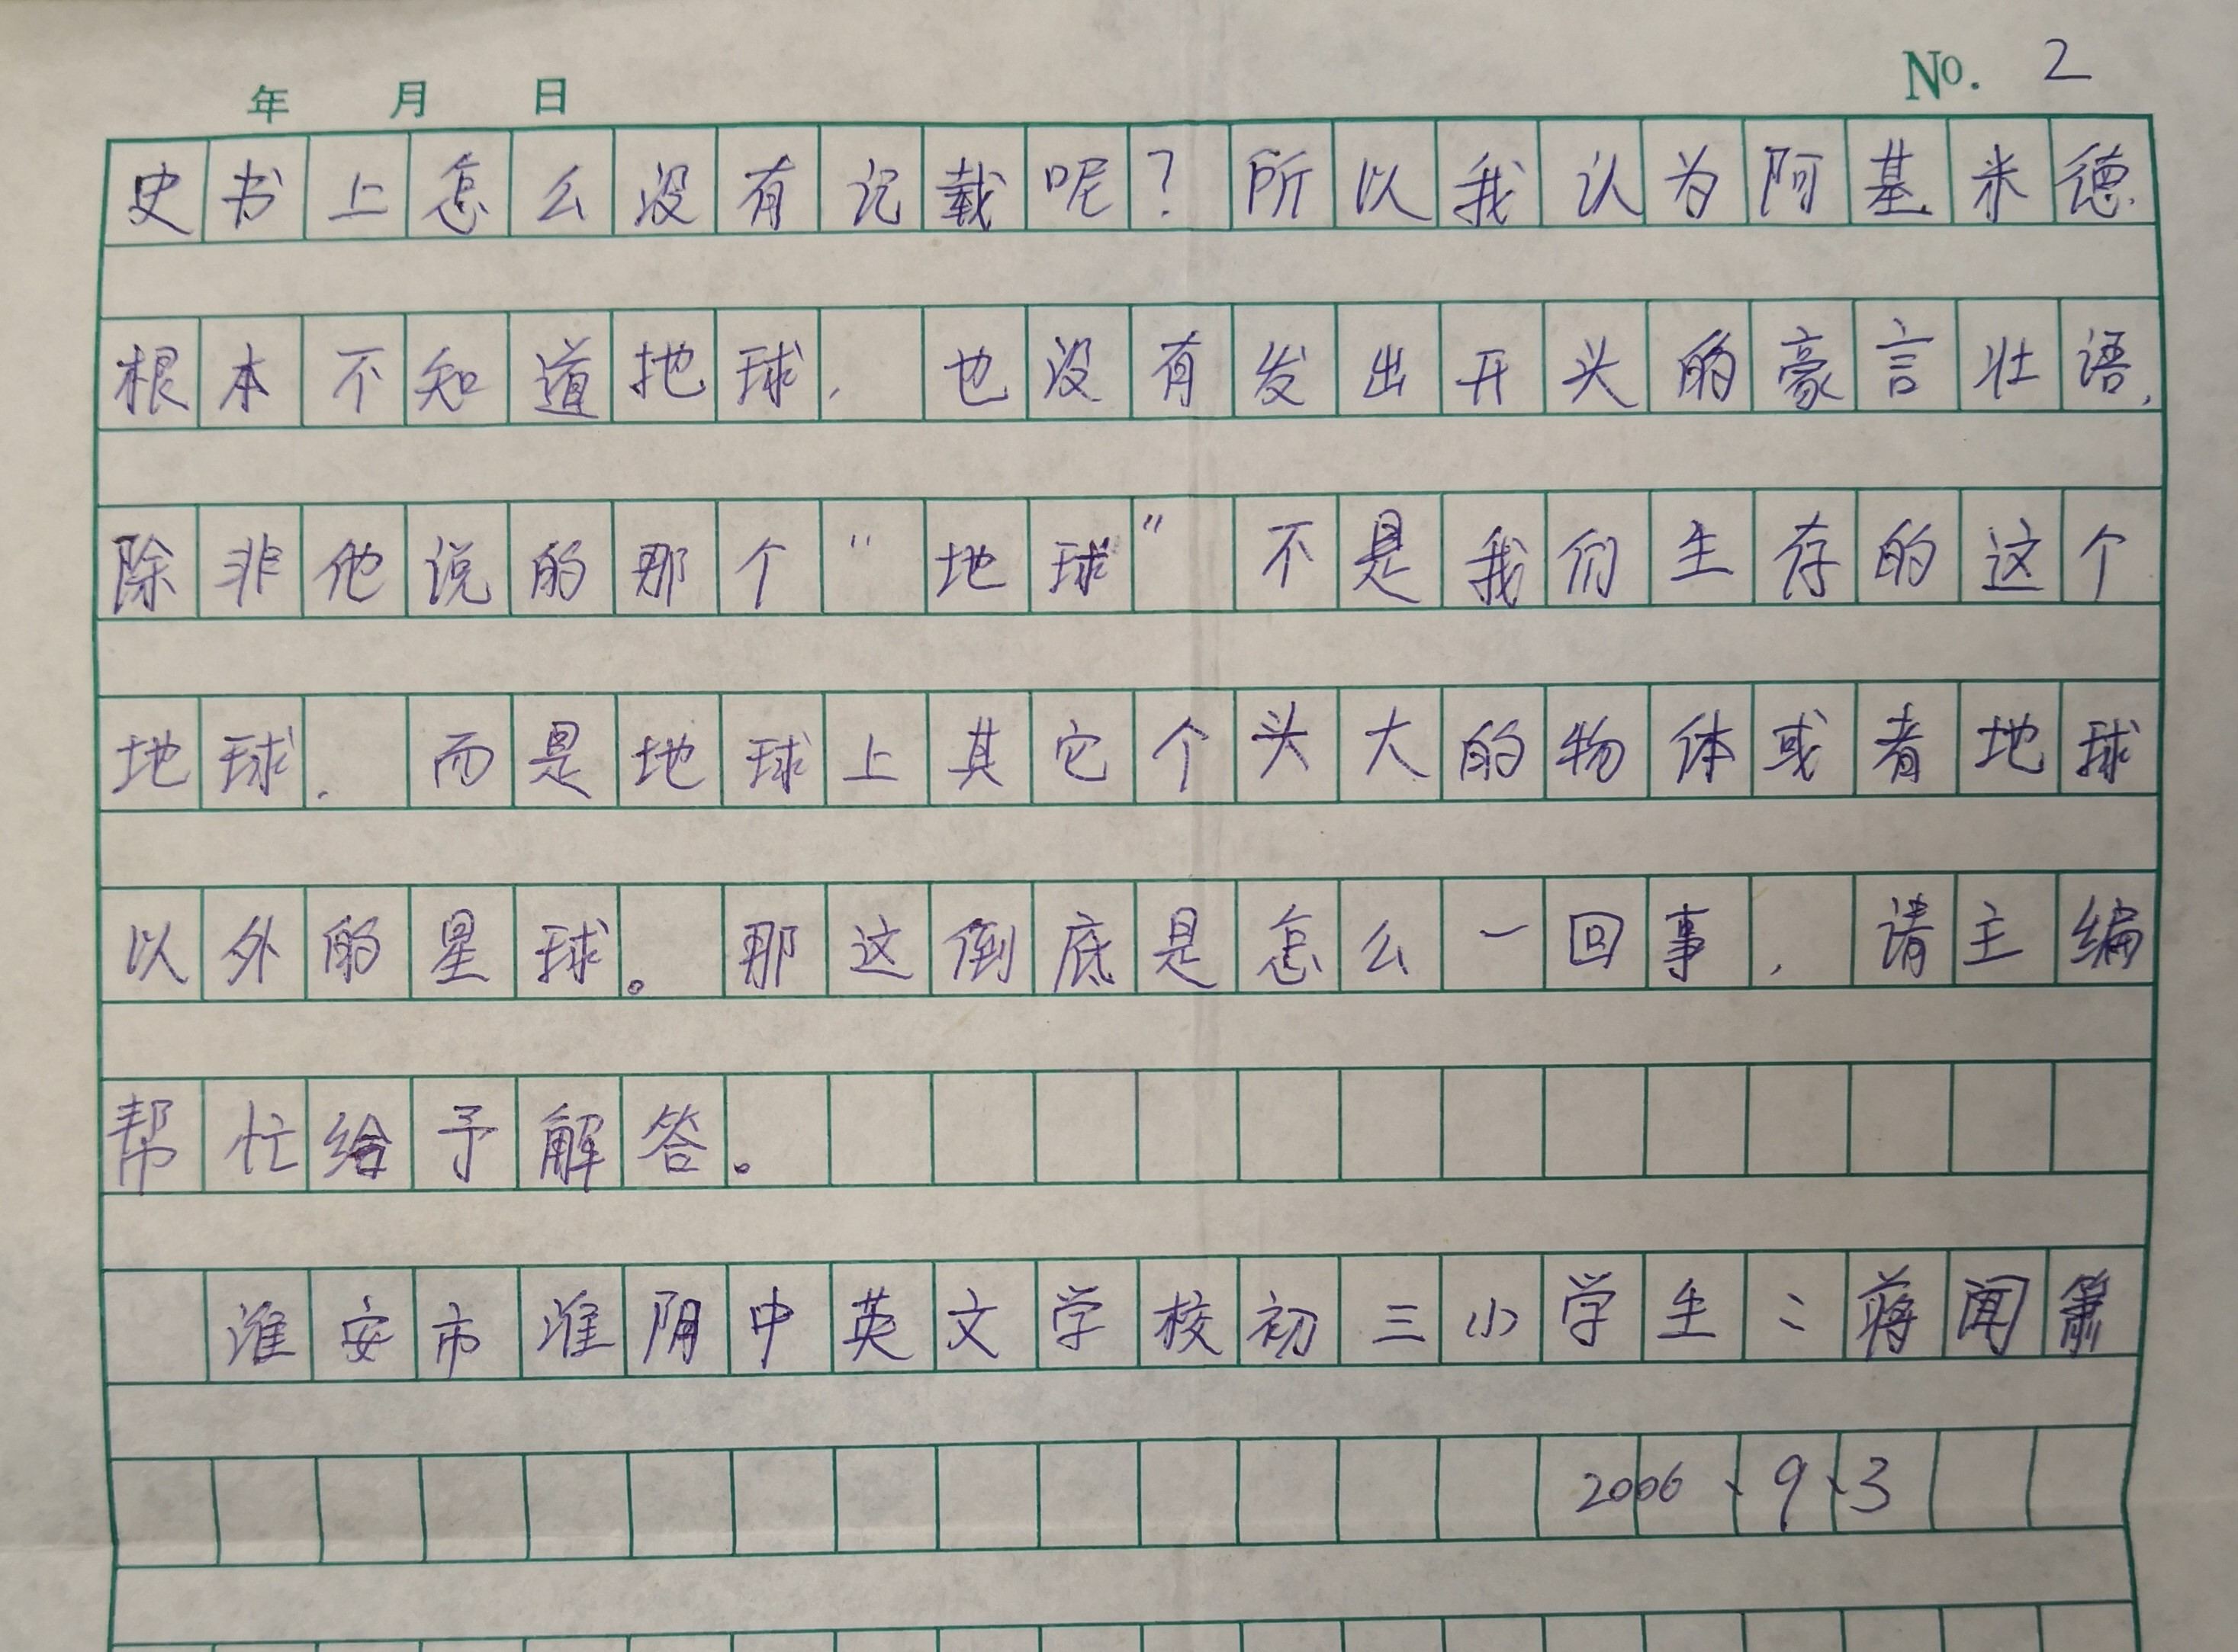 年 月 日 No. 2
史书上怎么没有记载呢？所以我认为阿基米德
根本不知道地球，也没有发出开头的豪言壮语，
除非他说的那个“地球”不是我们生存的这个
地球，而是地球上其它个头大的物体或者地球
以外的星球。那这倒底是怎么一回事，请主编
帮忙给予解答。
淮安市淮阴中英文学校初三小学生：蒋闻箫
2006、9、3